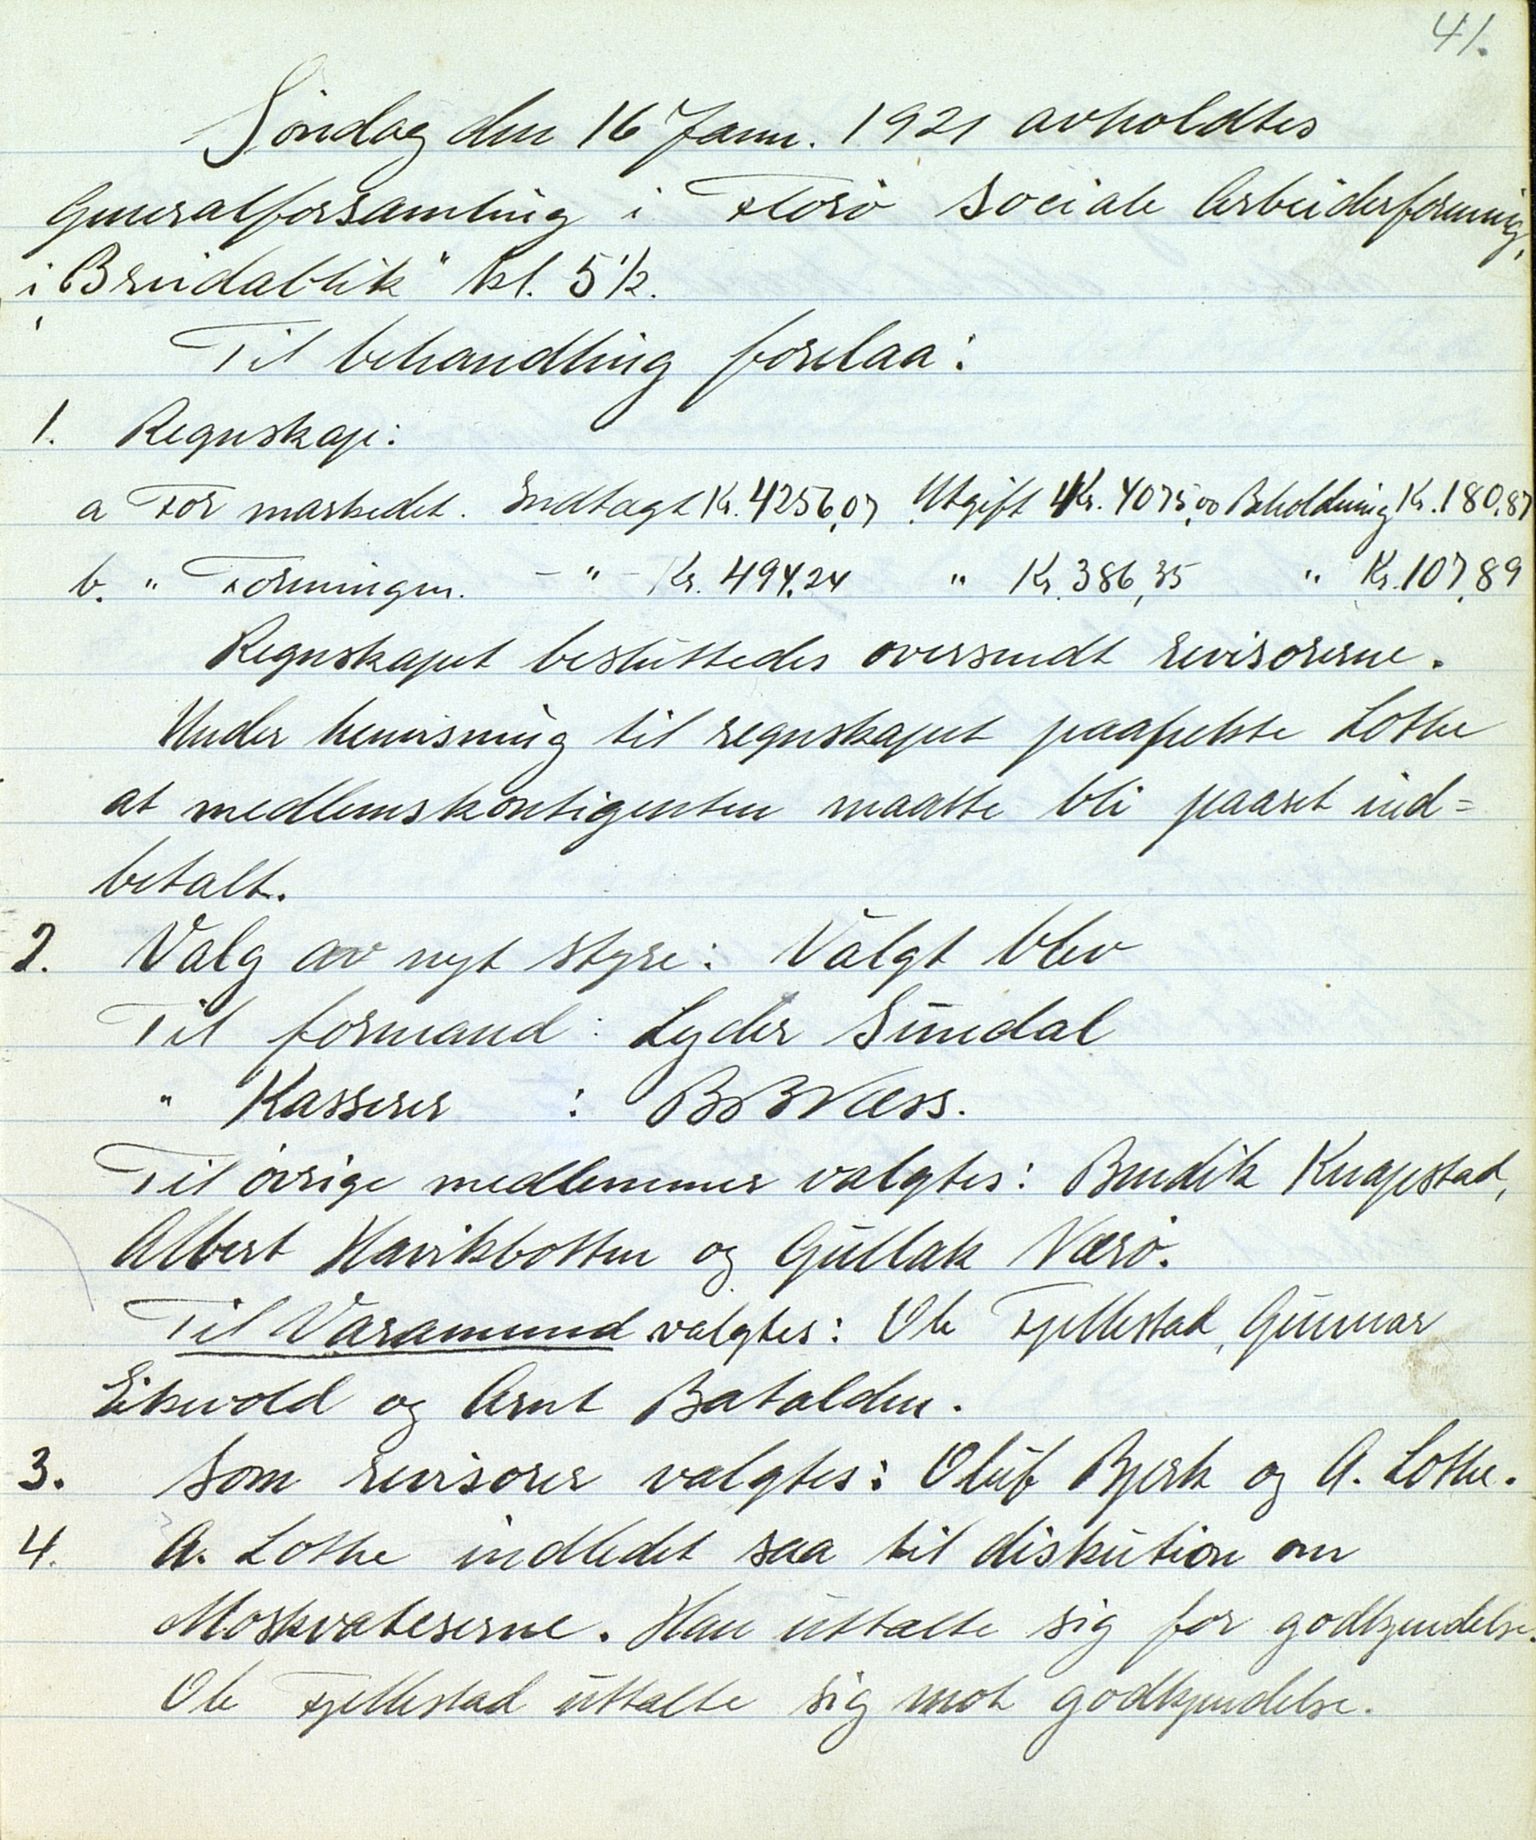 41.
Søndag den 16 Jann. 1921 avholdtes
Generalforsamling i Florø Sociale Arbeiderforening,
i „Breidablik" kl. 5 ½.
Til behandling forelaa:
1. Regnskap:
a For markedet. Indtægt Kr. 4256,07 Utgift Kr. 4075,00 Beholdning Kr. 180,87
b. " Foreningen. – " – Kr. 494,24 " Kr. 386,35 " Kr. 107,89
Regnskapet besluttedes oversendt revisorerne.
Under henvisning til regnskapet paapekte Lothe
at medlemskontigenten maatte bli paaset ind=
betalt.
2. Valg av nyt styre: Valgt blev
Til formand: Lyder Sundal
" Kasserer : B B Næss.
Til øvrige medlemmer valgtes: Bendik Knapstad,
Albert Havikbotten og Gullak Værø.
Til Varamænd valgtes: Ole Fjellestad, Gunnar
Eikevold og Arnt Batalden.
3. Som revisorer valgtes: Oluf Bjerk og A. Lothe.
4. A. Lothe indledet saa til diskution om
Moskvateserne. Han uttalte sig for godkjendelse.
Ole Fjellestad uttalte sig mot godkjendelse.